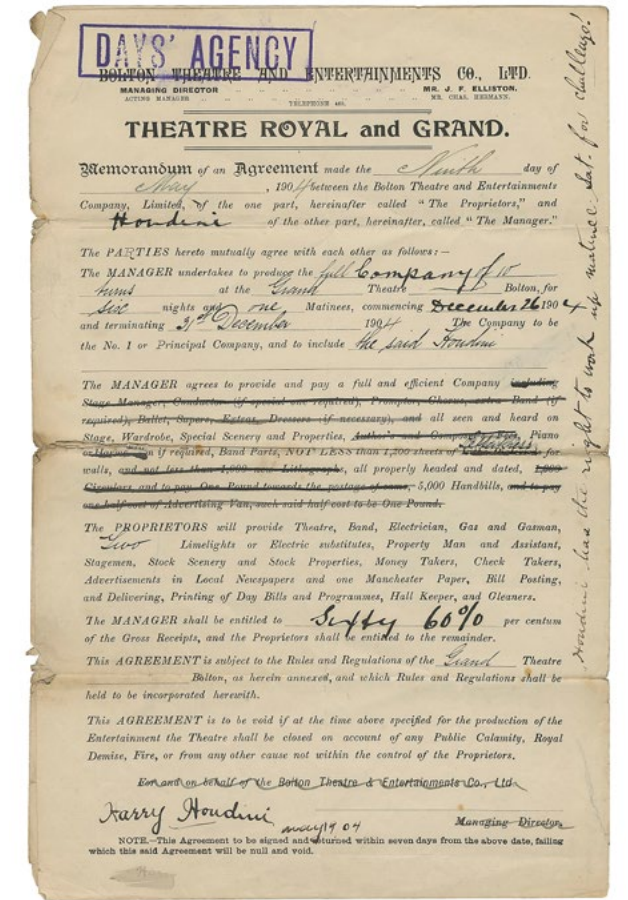 DAYS' AGENCY
BOLTON THEATRE AND ENTERTAINMENTS CO., LTD.
MANAGING DIRECTOR .. .. .. .. .. .. MR. J. F. ELLISTON.
ACTING MANAGER .. .. .. .. .. .. MR. CHAS. HERMANN.
TELEPHONE
THEATRE ROYAL and GRAND.
Memorandum of an Agreement made the Ninth day of
May, 1904 between the Bolton Theatre and Entertainments
Company, Limited, of the one part, hereinafter called "The Proprietors," and
Houdini of the other part, hereinafter, called "The Manager."
The PARTIES hereto mutually agree with each other as follows:—
The MANAGER undertakes to produce the full Company of 10
turns at the Grand Theatre Bolton, for
six nights and one Matinees, commencing December 26 1904
and terminating 31st December 1904 The Company to be
the No. 1 or Principal Company, and to include the said Houdini
The MANAGER agrees to provide and pay a full and efficient Company including
Stage Manager, Conductor (if special one required), Prompter, Chorus, extra Band (if
required), Ballet, Supers, Extras, Dressers (if necessary), and all seen and heard on
Stage, Wardrobe, Special Scenery and Properties, Author's and Piano
or if required, Band Parts, NOT LESS than 1,200 sheets of for
walls, and not less than 1,000 new Lithographs, all properly headed and dated,
Circulars, and to pay One Pound towards the postage of same, 5,000 Handbills, and to pay
one half cost of Advertising Van, such said half cost to be One Pound.
The PROPRIETORS will provide Theatre, Band, Electrician, Gas and Gasman,
Two Limelights or Electric substitutes, Property Man and Assistant,
Stagemen, Stock Scenery and Stock Properties, Money Takers, Check Takers,
Advertisements in Local Newspapers and one Manchester Paper, Bill Posting,
and Delivering, Printing of Day Bills and Programmes, Hall Keeper, and Cleaners.
The MANAGER shall be entitled to Sixty 60% per centum
of the Gross Receipts, and the Proprietors shall be entitled to the remainder.
This AGREEMENT is subject to the Rules and Regulations of the Grand Theatre
Bolton, as herein annexed, and which Rules and Regulations shall be
held to be incorporated herewith.
This AGREEMENT is to be void if at the time above specified for the production of the
Entertainment the Theatre shall be closed on account of any Public Calamity, Royal
Demise, Fire, or from any other cause not within the control of the Proprietors.
For and on behalf of the Bolton Theatre & Entertainments Co., Ltd
Harry Houdini may 19 04 Managing Director.
NOTE.—This Agreement to be signed and returned within seven days from the above date, failing
which this said Agreement will be null and void.
Houdini has the right to work up matinee Sat. for challenge!